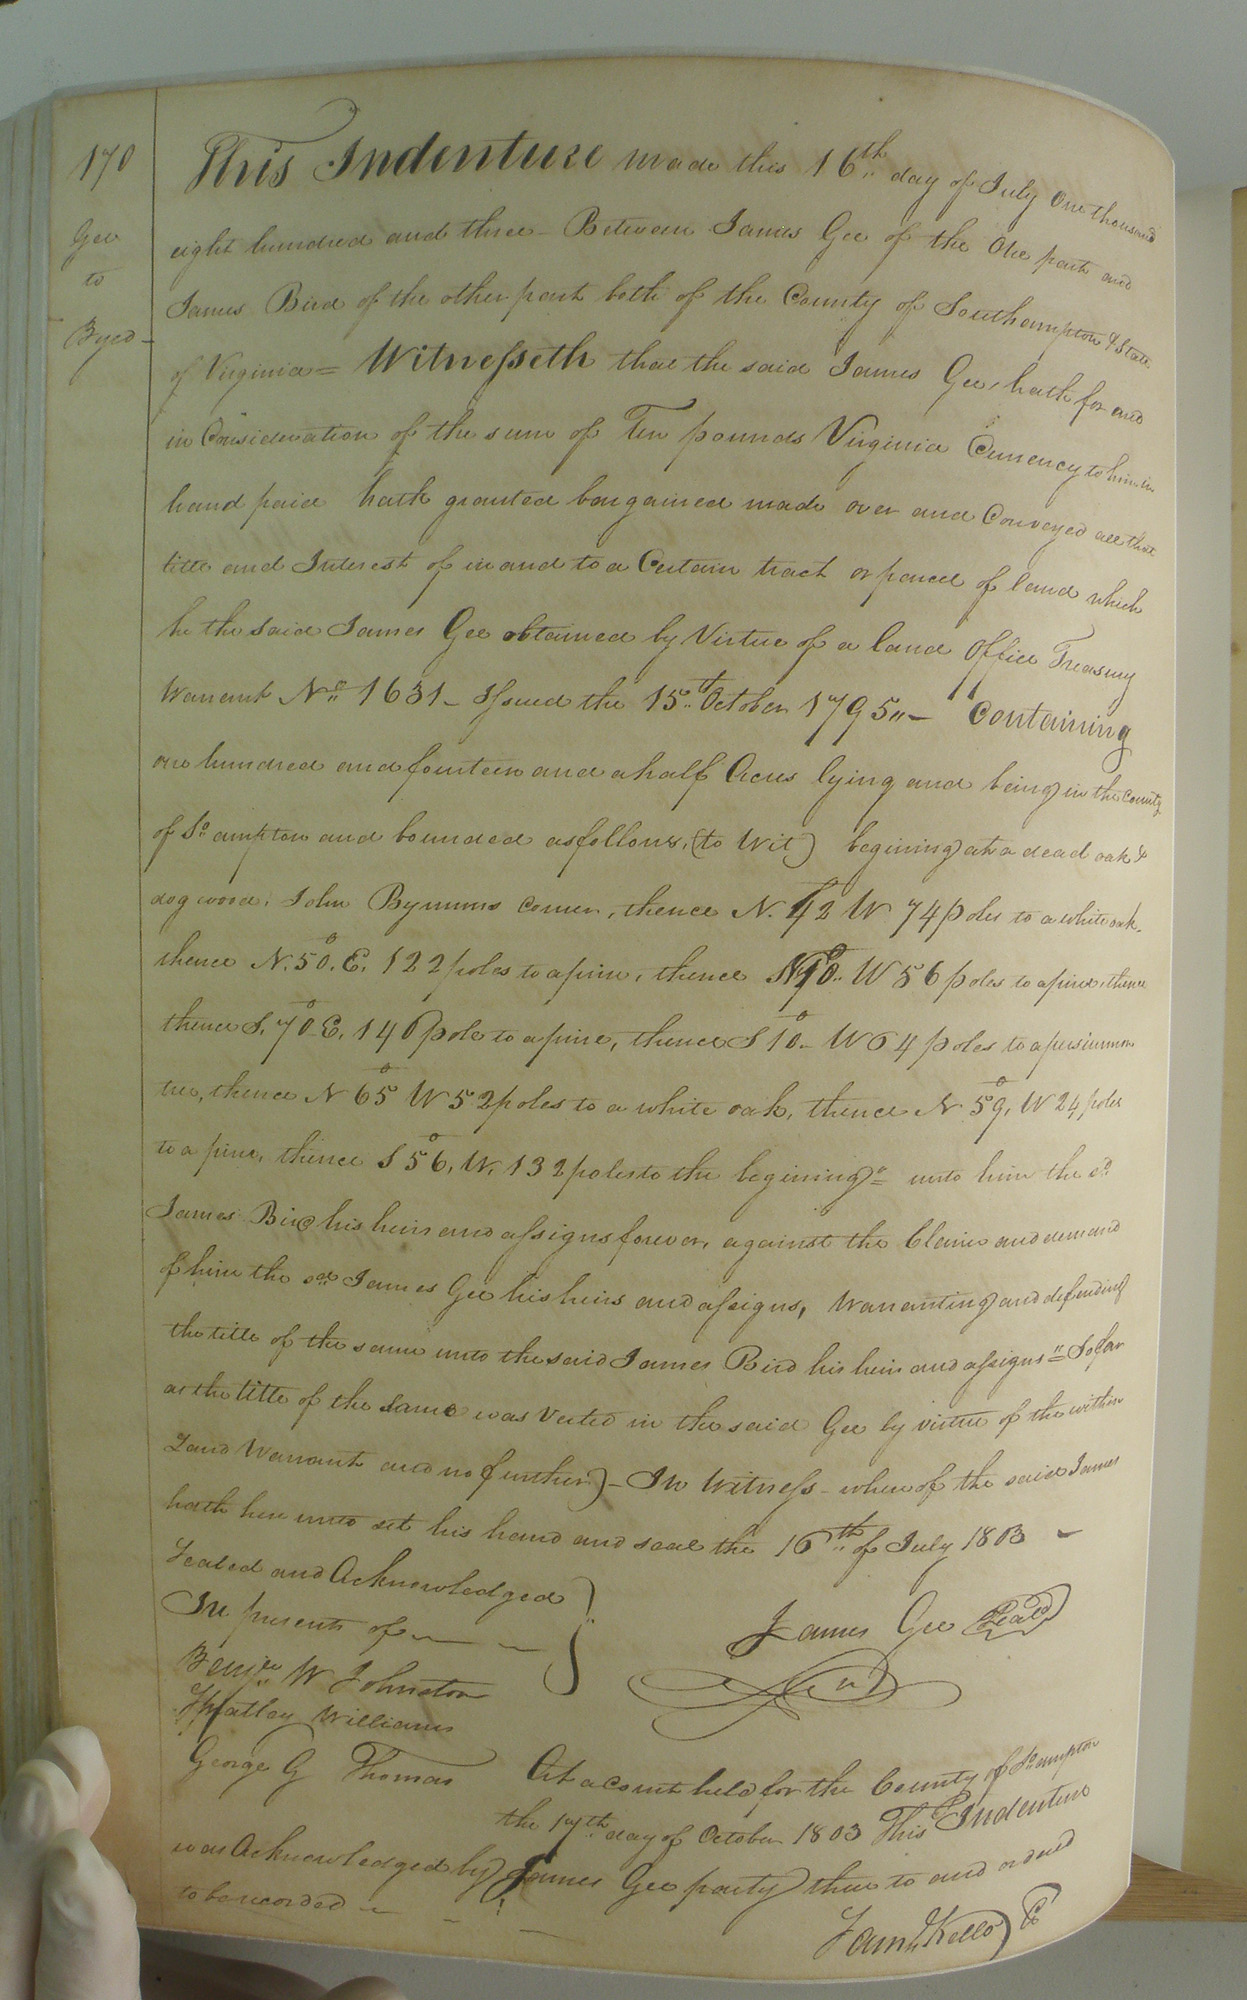 170
Gee
to
Byrd
This Indenture made this 16th day of July One thousand
eight hundred and three Between James Gee of the One part and
James Bird of the other part both of the County of Southampton & State
of Virginia = Witnesseth that the said James Gee, hath for and
in Consideration of the sum of Ten pounds Virginia Currency to him in
hand paid hath granted bargained made over and Conveyed all that
title and Interest of in and to a Certain tract or parcel of land which
he the said James Gee obtained by Virtue of a land Office Treasury
Warrant No 1631 - Issued the 15th October 1795 - Containing
one hundred and fourteen and a half Acres lying and being in the County
of So ampton and bounded as follows, (to Wit) begining at a dead oak &
dogwood, John Bynums corner, thence N. 42 W 74 poles to a white oak,
thence N. 50. E. 122 poles to a pine, thence W 56 poles to a pine, thence
thence S. 70 E. 140 pole to a pine, thence S 10 - W 64 poles to a persimmon
tree, thence N 65 W 52 poles to a white oak, thence N 59, W 24 poles
to a pine, thence S 56, W. 132 poles to the begining = unto him the sd
James Bird his heirs and assigns forever, against the Claim and demand
of him the sd James Gee his heirs and assigns, Warranting and defending
the title of the same unto the said James Bird his heirs and assigns = So far
as the title of the same was Vested in the said Gee by virtue of the within
Land Warrant and no further) - In Witness - whereof the said James
hath here unto set his hand and seal the 16th of July 1803 -
Sealed and Acknowledged
In presents of
James Gee Seal
Benjn W Johnston
Whatley Williams
George G Thomas
At a court held for the County of So ampton
the 17th day of October 1803 This Indenture
was Acknowledged by James Gee party there to and ordered
to be recorded
Saml Kello C